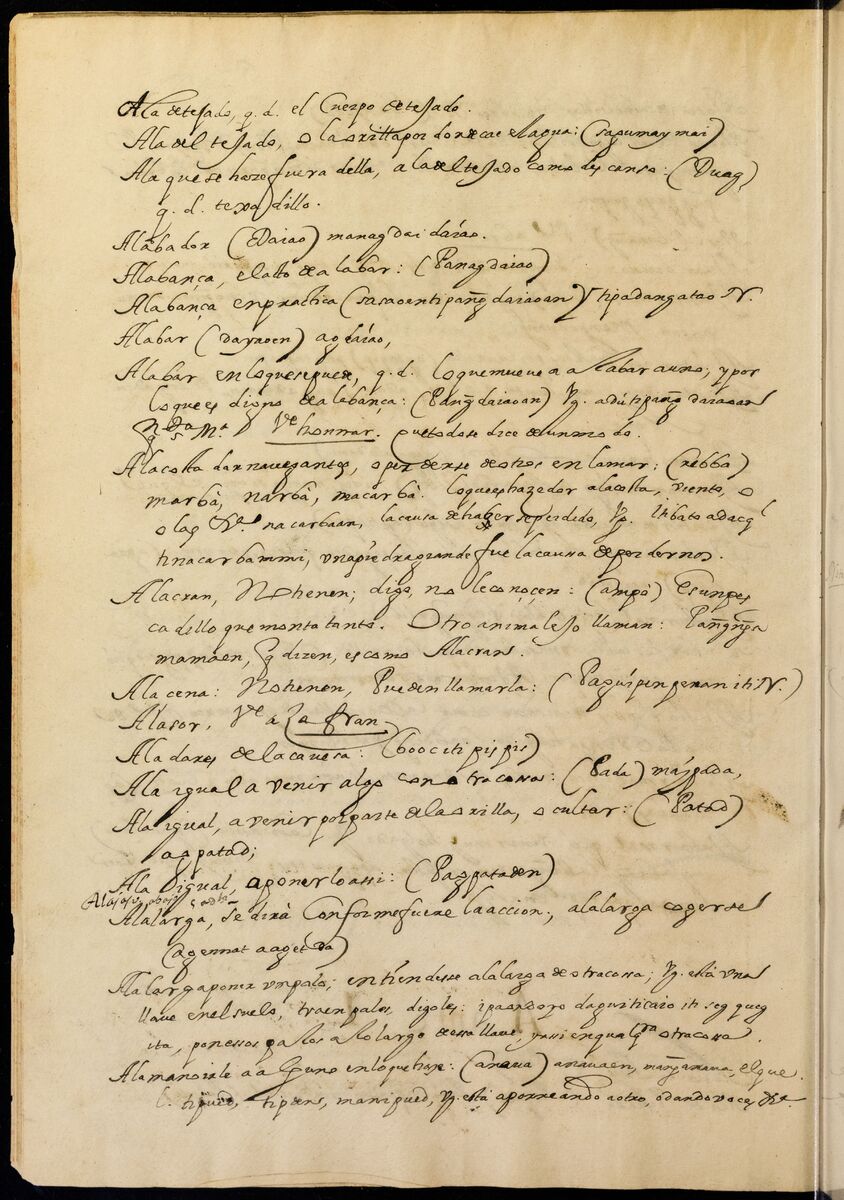 Ala de teJado, q. d. el Cuerpo de teJado.
Ala del teJado, o la orilla por donde cae el agua: (sagumaymai)
Ala que se haze fuera della, a la del teJado como des canso: (Duag)
q. d. texa dillo.
Alabador (Daiao) managdai daiao.
Alabança, el atto de alabar: (Panagdaiao)
Alabança en practica (sasaoanti pang̃daiaoan) tipadangatao &c.
Alabar (dayaoen) agdaiao,
Alabar en lo que se puede, q. d. lo que mueve a alabar a uno, y por
lo que es digno de alabança: (Pang̃daiaoan) Vg. adu ti pang̃daiaoan
Vde honrrar. q todo se dice de un modo.
A la costa dar navegantes, o perderse de otros en la mar: (rebba)
marbà, narbà, macarbà. lo que es hazedor a la costa, viento, o
olas &c. nacarbaan, la causa de haber se perdido, Vg. 
tinacarbammi, una piedra grande fue la causa de perdernos.
Alacran, No tienen; digo, no le conoçen: (ampò) Es un pes
cadillo que monta tanto. Otro animaleJo llaman:
mamàen, q dizen, es como Alacran.
Alacena: No tienen, Pueden llamarla: (Pagúipenpenan iti &c.)
Alasor, Vde açafran
Aladares de la cavesa: (boociti pispis)
A la igual a venir algo con otra cossa: (Pada) máipada,
A la igual, a venir por parte de la orilla, o cultar: (Patad)
agpatad;
A la igual, a ponerlo assi: (Pagpataden)
A la larga, se dirà Conforme fuere la accion, a la larga cogerse
(agennat aaget da)
A la larga poner un palo; entiendesse a la larga de otra cossa; Vg. està una
llave en el suelo, traen palos, digoles:
ita, pon essos palos a lo largo de essa llave, y assi en qualqra otra cossa.
A la mano irle a alguno en lo que haze: (anaua) anauaen, mang̃anaua, el que.
tipdens, manipued, Vg. està aporreando a otro, o dando voces &c.